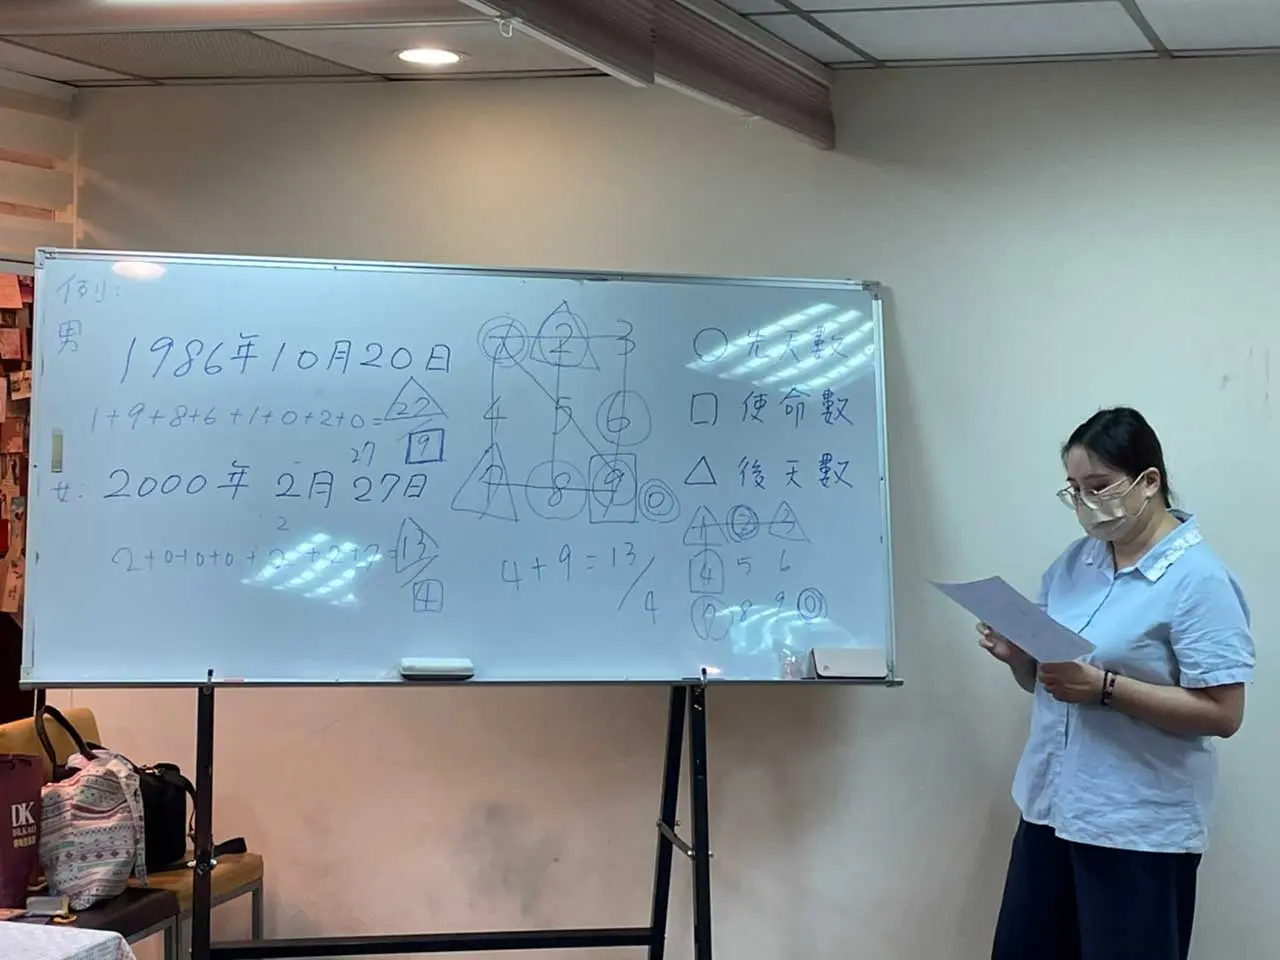 例:
男
1986年10月20日
1+9+8+6+1+0+2+0=27
27 9
女:
2000年2月27日
2
2+0+0+0+2+2+7=13
4
1 2 3
4 5 6
7 8 9 0
4+9=13/4
○ 先天數
□ 使命數
△ 後天數
1 2 3
4 5 6
7 8 9 0
DK